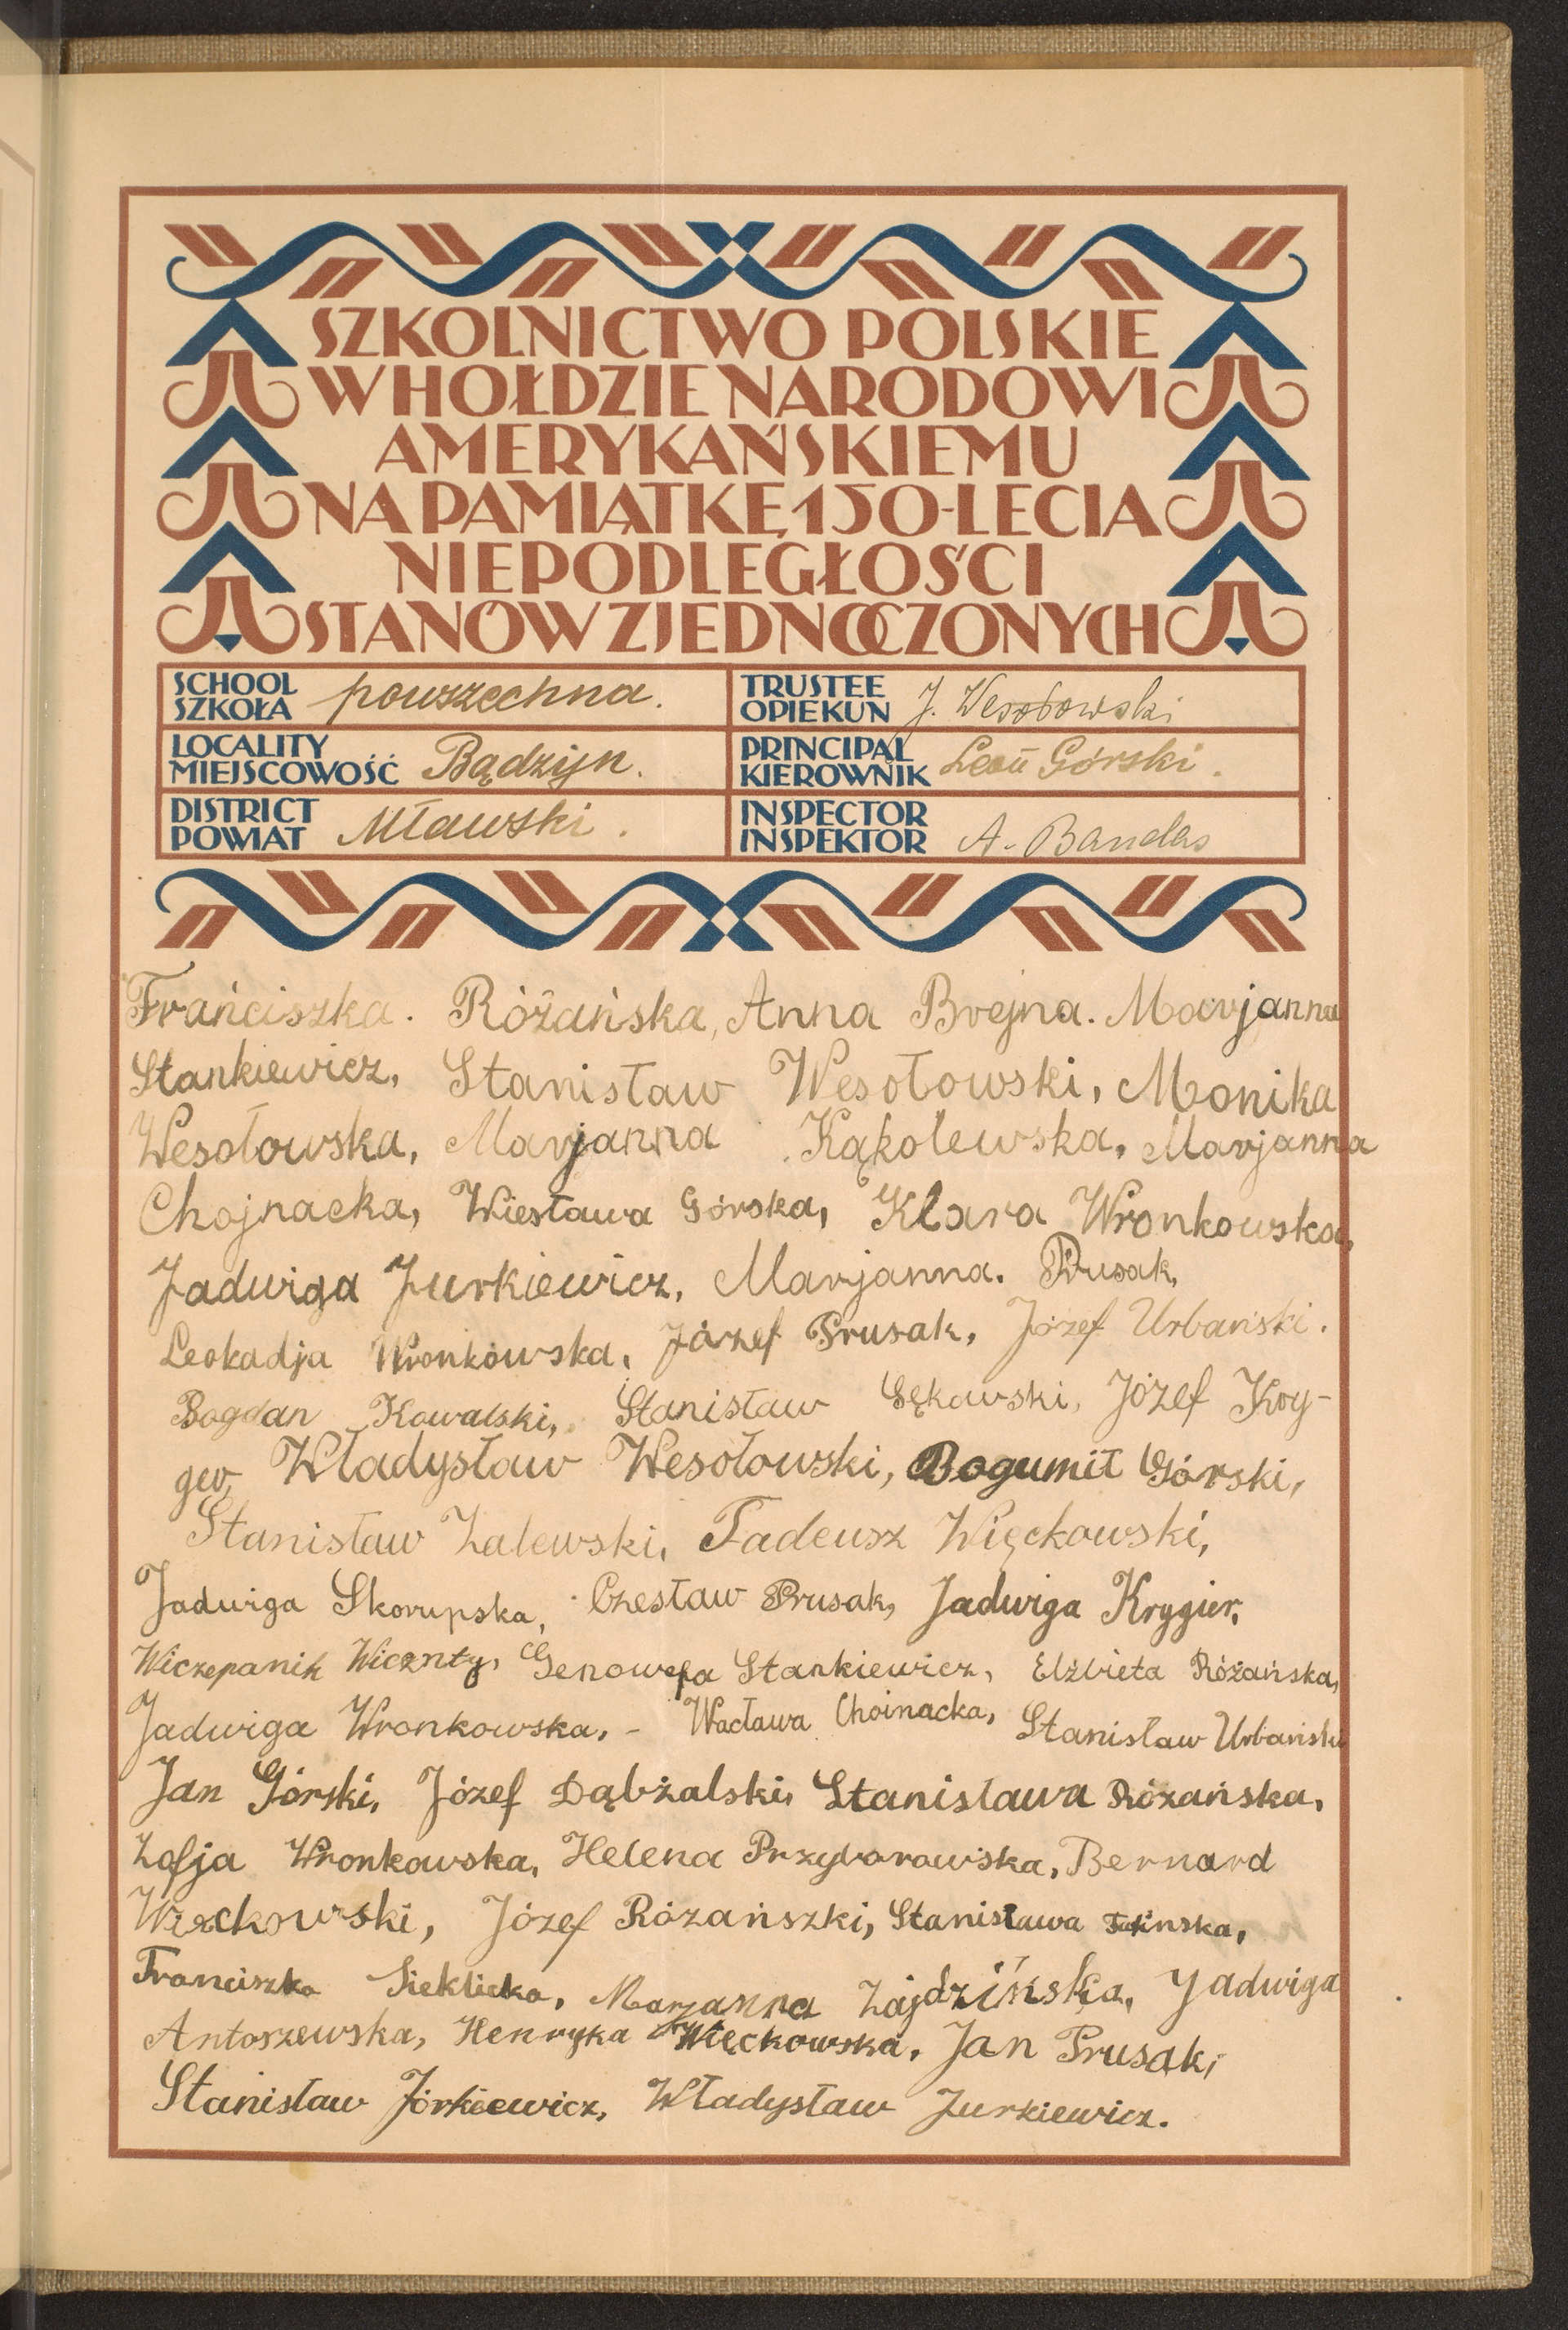 SZKOLNICTWO POLSKIE
W HOŁDZIE NARODOWI
AMERYKAŃSKIEMU
NA PAMIĄTKĘ 150-LECIA
NIEPODLEGŁOŚCI
STANÓW ZJEDNOCZONYCH
SCHOOL
SZKOŁA powszechna.
TRUSTEE
OPIEKUN J. Wesołowski
LOCALITY
MIEJSCOWOŚĆ Bądzyn.
PRINCIPAL
KIEROWNIK Leon Górski.
DISTRICT
POWIAT Mławski.
INSPECTOR
INSPEKTOR A. Bandas
Frańciszka. Różańska, Anna Brejna. Marjanna
Stankiewicz, Stanisław Wesołowski, Monika
Wesołowska, Marjanna Kąkolewska, Marjanna
Chojnacka, Wiesława Górska, Klara Wronkowska,
Jadwiga Jurkiewicz, Marjanna. Prusak,
Leokadja Wronkowska, Józef Prusak, Józef Urbański.
Bogdan Kowalski, Stanisław Sękowski, Józef Kry-
ger, Władysław Wesołowski, Bogumił Górski,
Stanisław Zalewski, Tadeusz Więckowski,
Jadwiga Skorupska, Czesław Prusak, Jadwiga Krygier,
Wiczepanik Wicznty, Genowefa Stankiewicz, Elżbieta Różańska,
Jadwiga Wronkowska, - Wacława Choinacka, Stanisław Urbański
Jan Górski, Józef Dąbżalski, Stanisława Różańska,
Zofja Wronkowska, Helena Przyborowska, Bernard
Więckowski, Józef Rózańszki, Stanisława
Franciszka Sieklicka, Marjanna Zajdzińska, Jadwiga
Antoszewska, Henryka Więckowska, Jan Prusak,
Stanisław Jórkiewicz, Władysław Jurkiewicz.